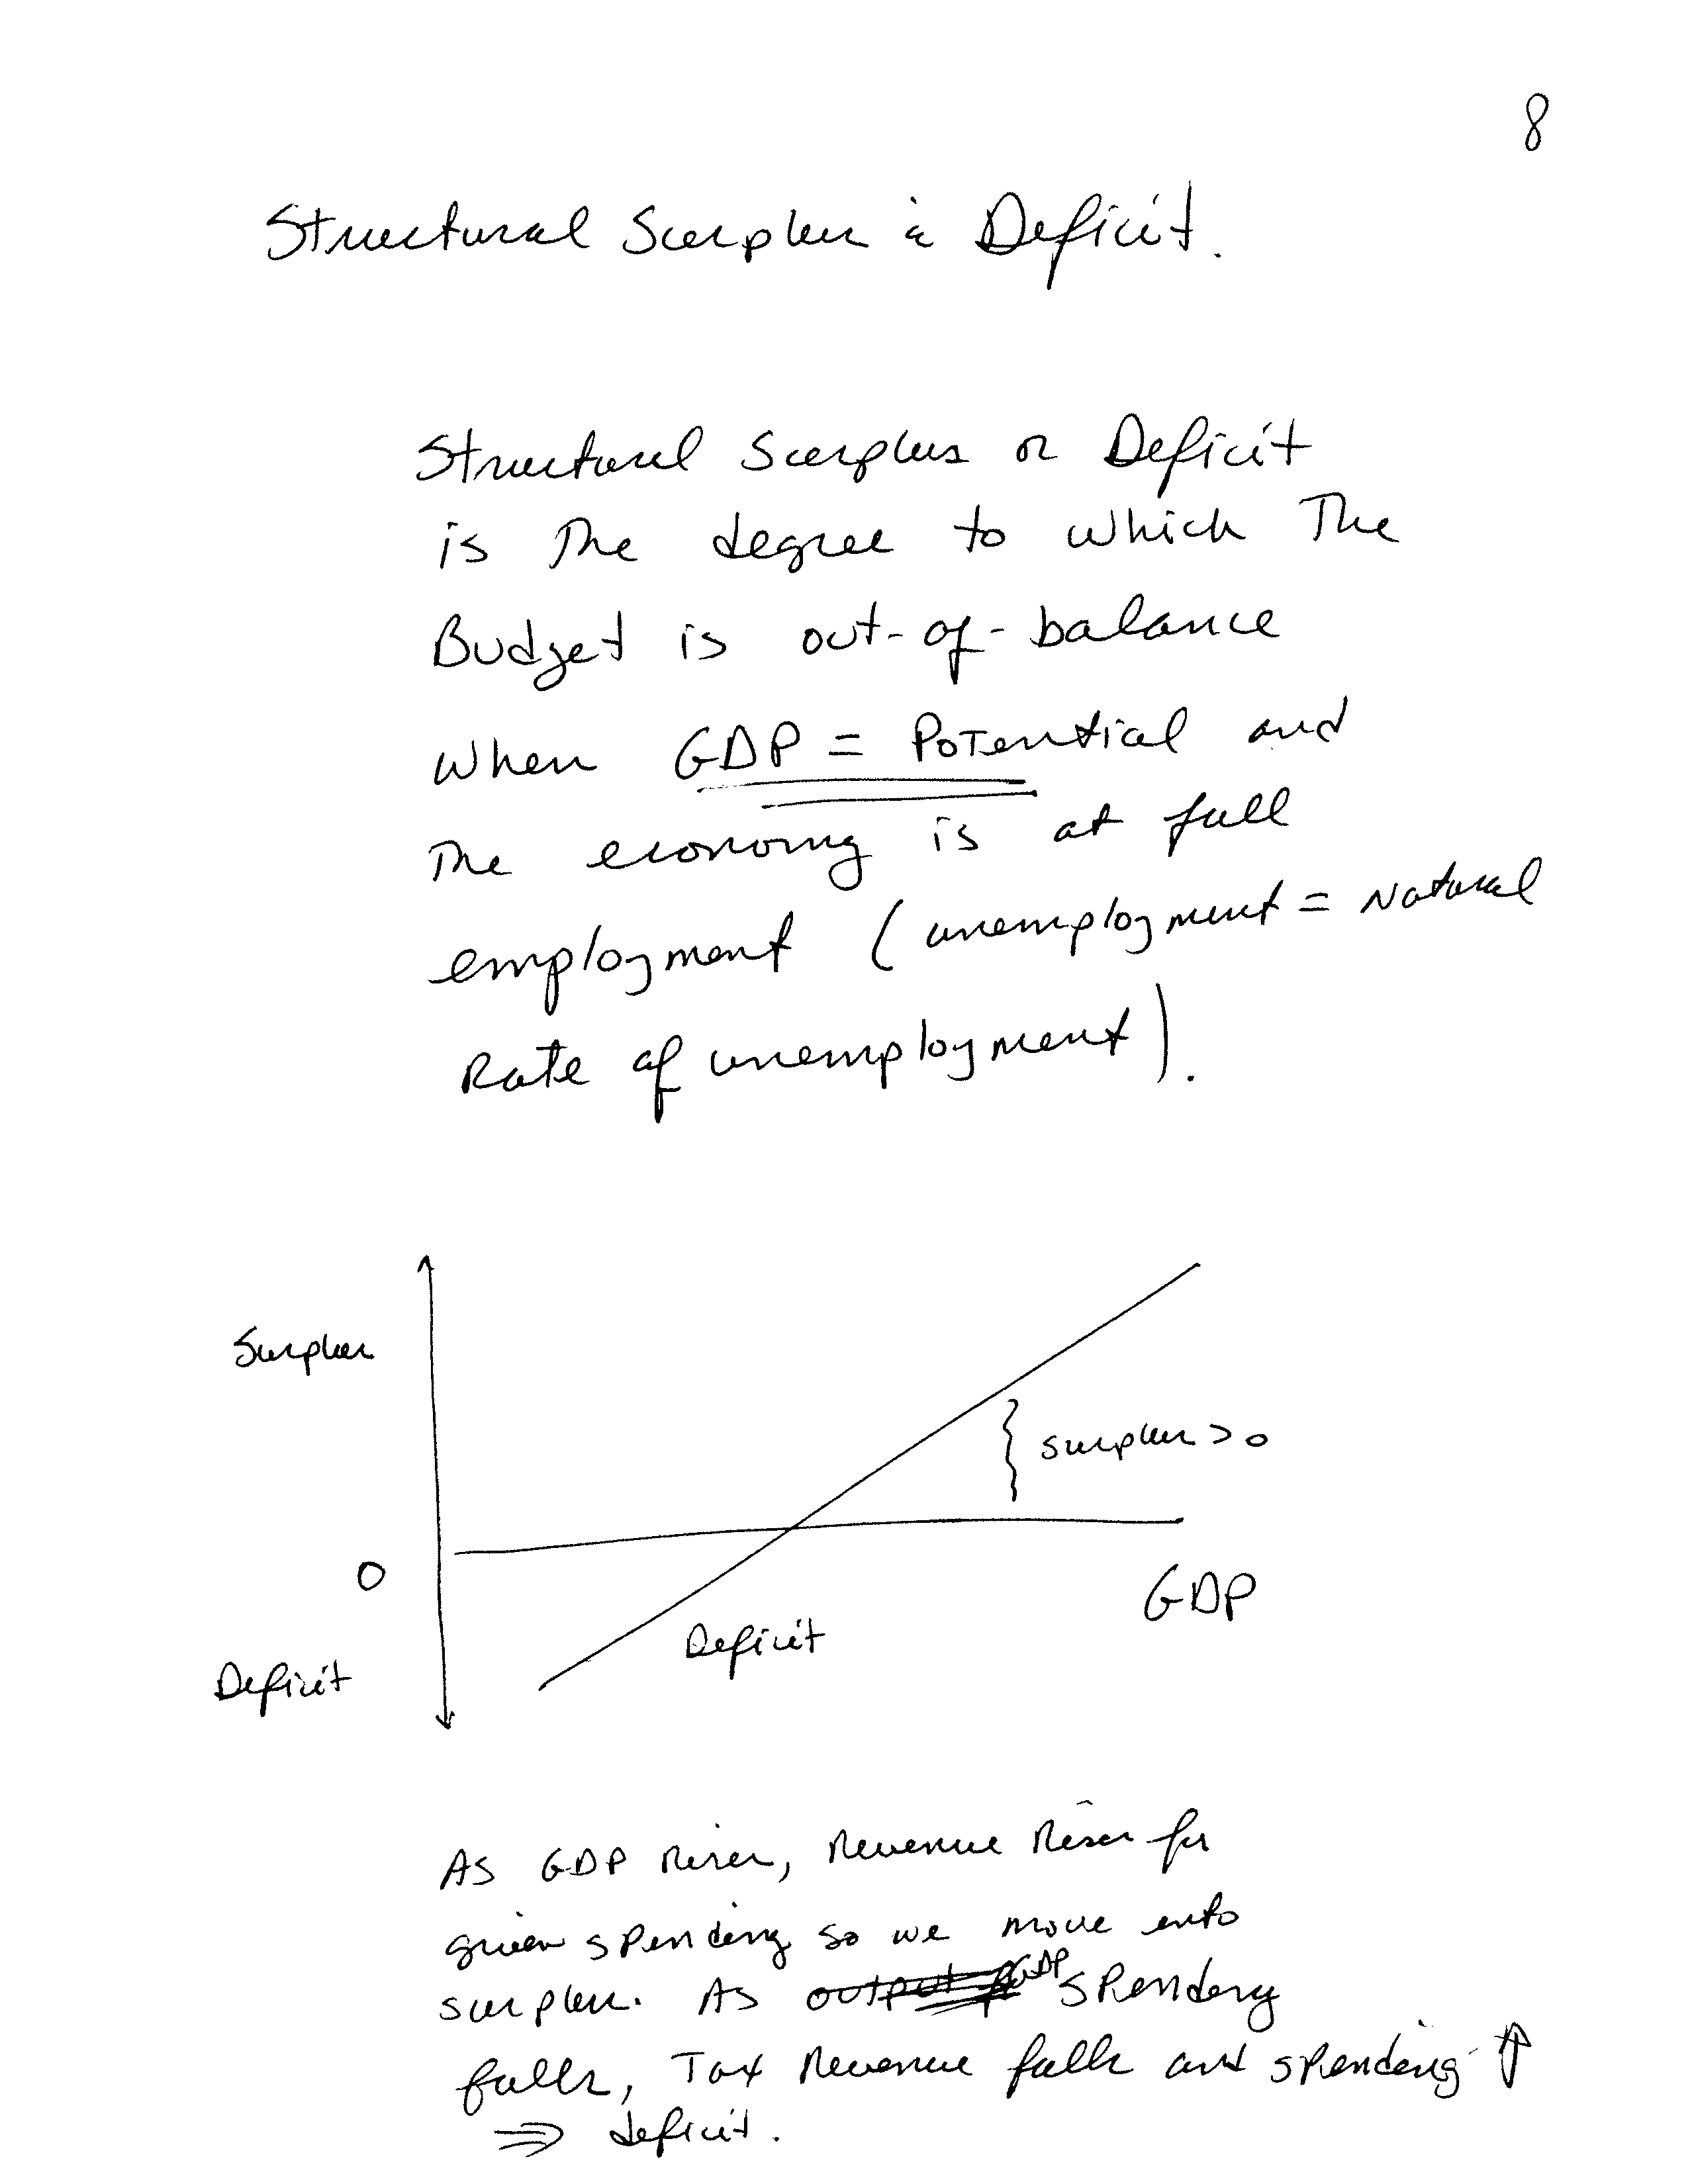 8
Structural Surplus & Deficit.
Structural Surplus or Deficit
is The degree to which The
Budget is out-of-balance
when GDP = Potential and
The economy is at full
employment (unemployment = Natural
Rate of unemployment).
Surplus
} surplus > 0
0
GDP
Deficit
Deficit
As GDP Rises, Revenue Rises for
given spending so we move into
surplus. As output GDP spending
falls, Tax Revenue falls and spending ↑
⇒ deficit.